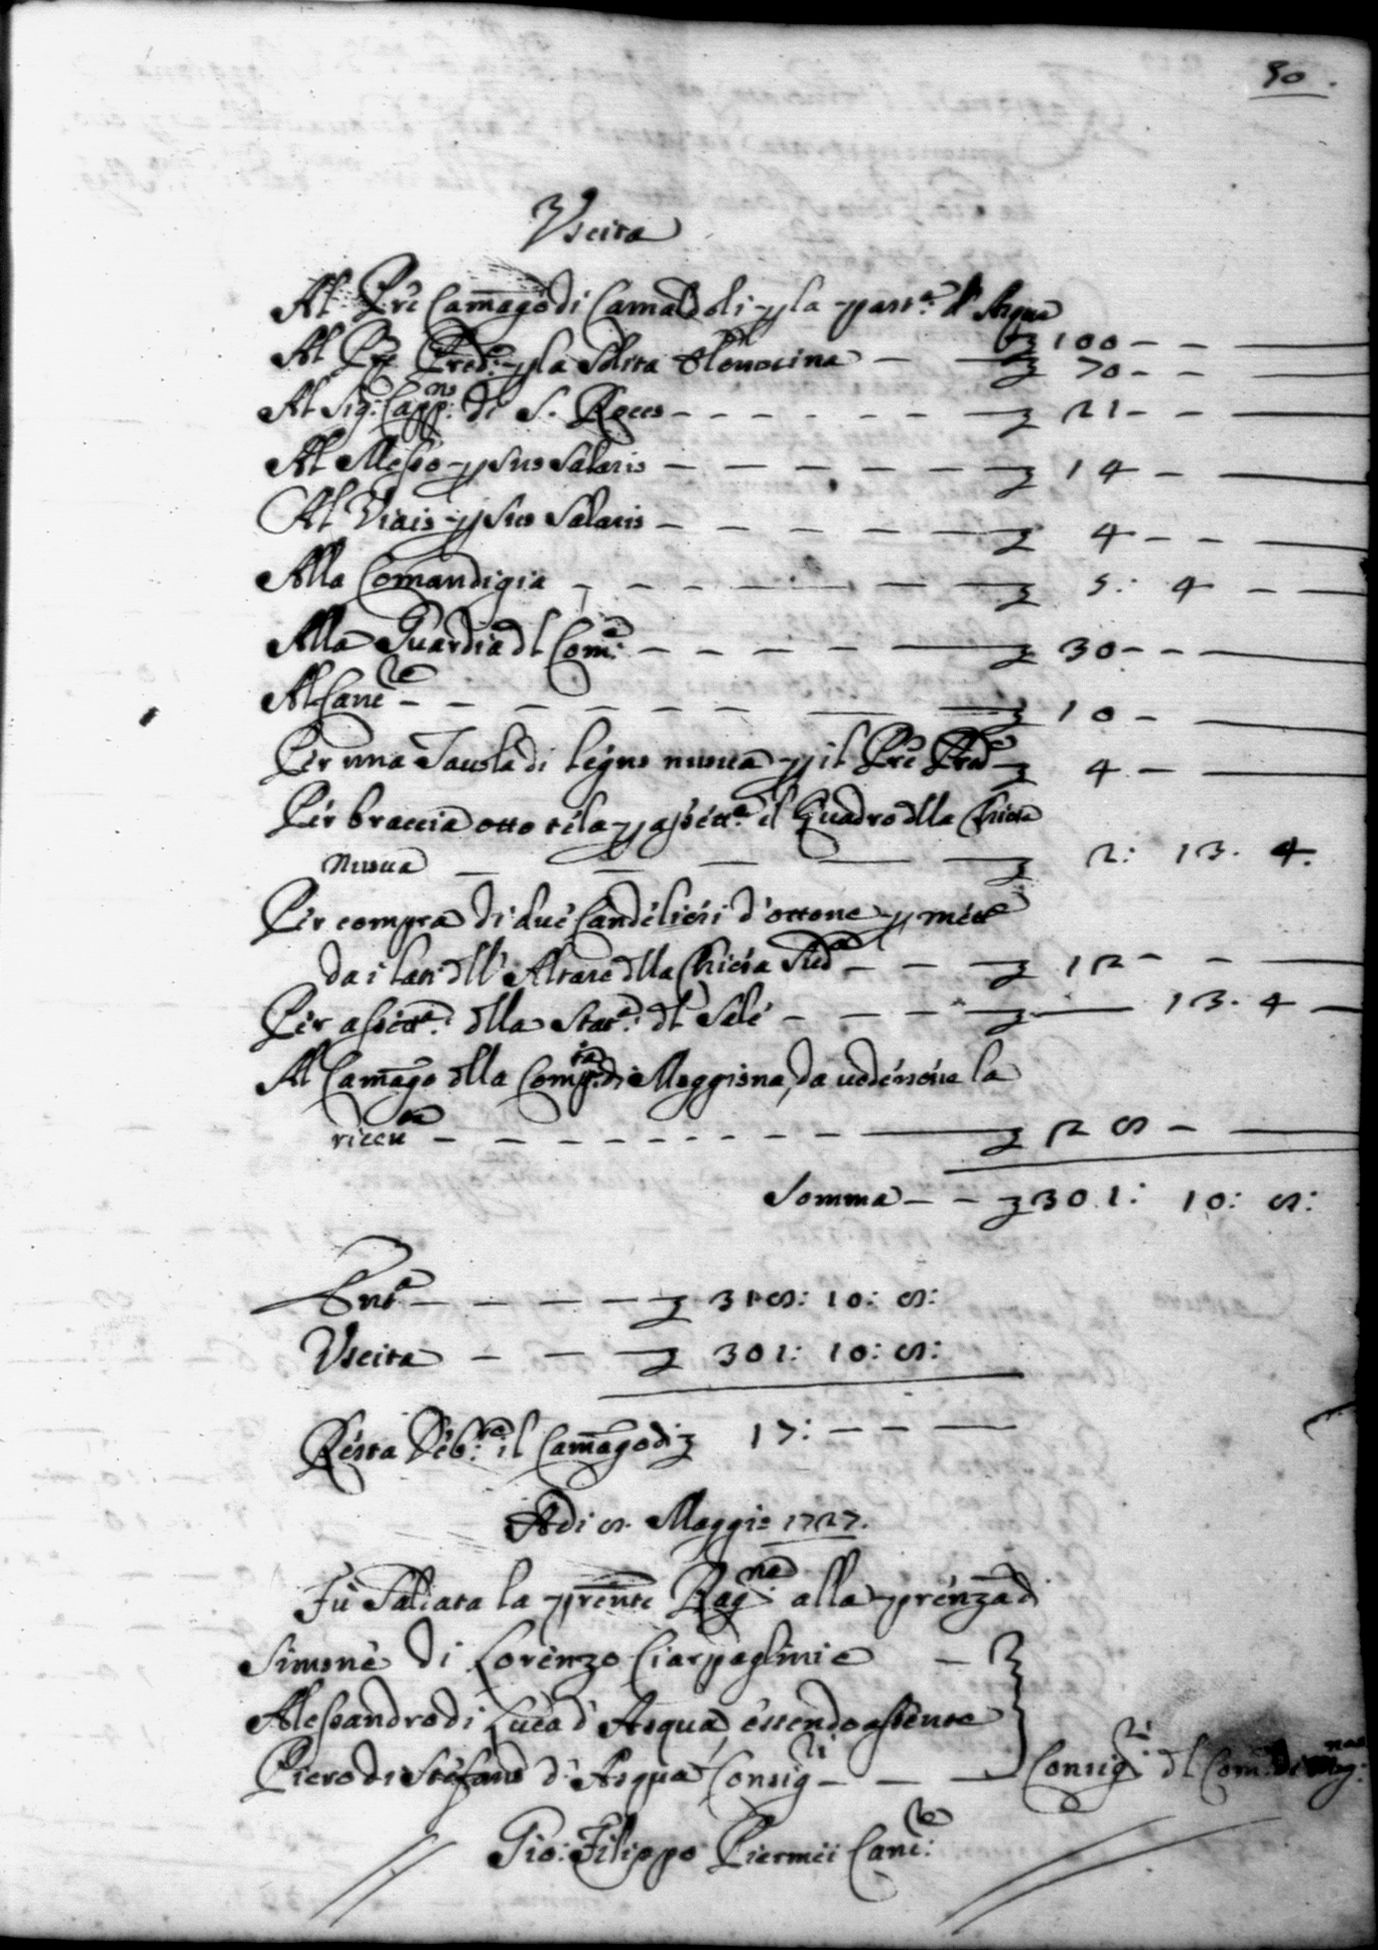 50.
Uscita
Al Pre Camago di Camaldoli p la part.e d'Acqua
£ 100 - -
Al Pre Pred.o p la solita elemosina - £ 70 - -
Al Sig: Capp:no di S. Rocco - - - - - - £ 21 - -
Al Messo p suo salario - - - - - £ 14 -
Al Viaio p suo salario - - - - - £ 4 - -
Alla Comandigia - - - - - - £ 5: 4 -
Alla Guardia dl Com:e - - - - - £ 30 - -
Al Canc:re - - - - - - - £ 10 -
Per una Tavola di legno nuova p il Pre Pred.o £ 4 -
Per braccia otto tela p assett.e il Quadro dlla Chiesa
nuova - - - - - £ 2: 13. 4.
Per compra di due Candelieri d'ottone p mett.e
da i lati dll'Altare dlla Chiesa Sud.a - - - £ 12 - -
Per assett.a dlla Stat.a dl Sale - - - - £ 13. 4 -
Al Camago dlla Comp:ta di Moggiona, da vedersene la
riceu.ta - - - - - - - - - £ 25 -
Somma - - £ 301: 10: 8:
Ent.a - - - - £ 318: 10: 8:
Uscita - - - £ 301: 10: 8:
Resta Deb:re il Camago di £ 17: - - -
Adi 8. Maggio 1727.
Fù Saldata la prente Rag:ne alla prenza di
Simone di Lorenzo Ciarpaglini e -
Alessandro di Luca d'Acqua, essendo assente
Piero di Stefano d'Acqua Consig:ri - - - Consig:ri dl Com.e di Mog:na
Gio: Filippo Piermei Canc:re